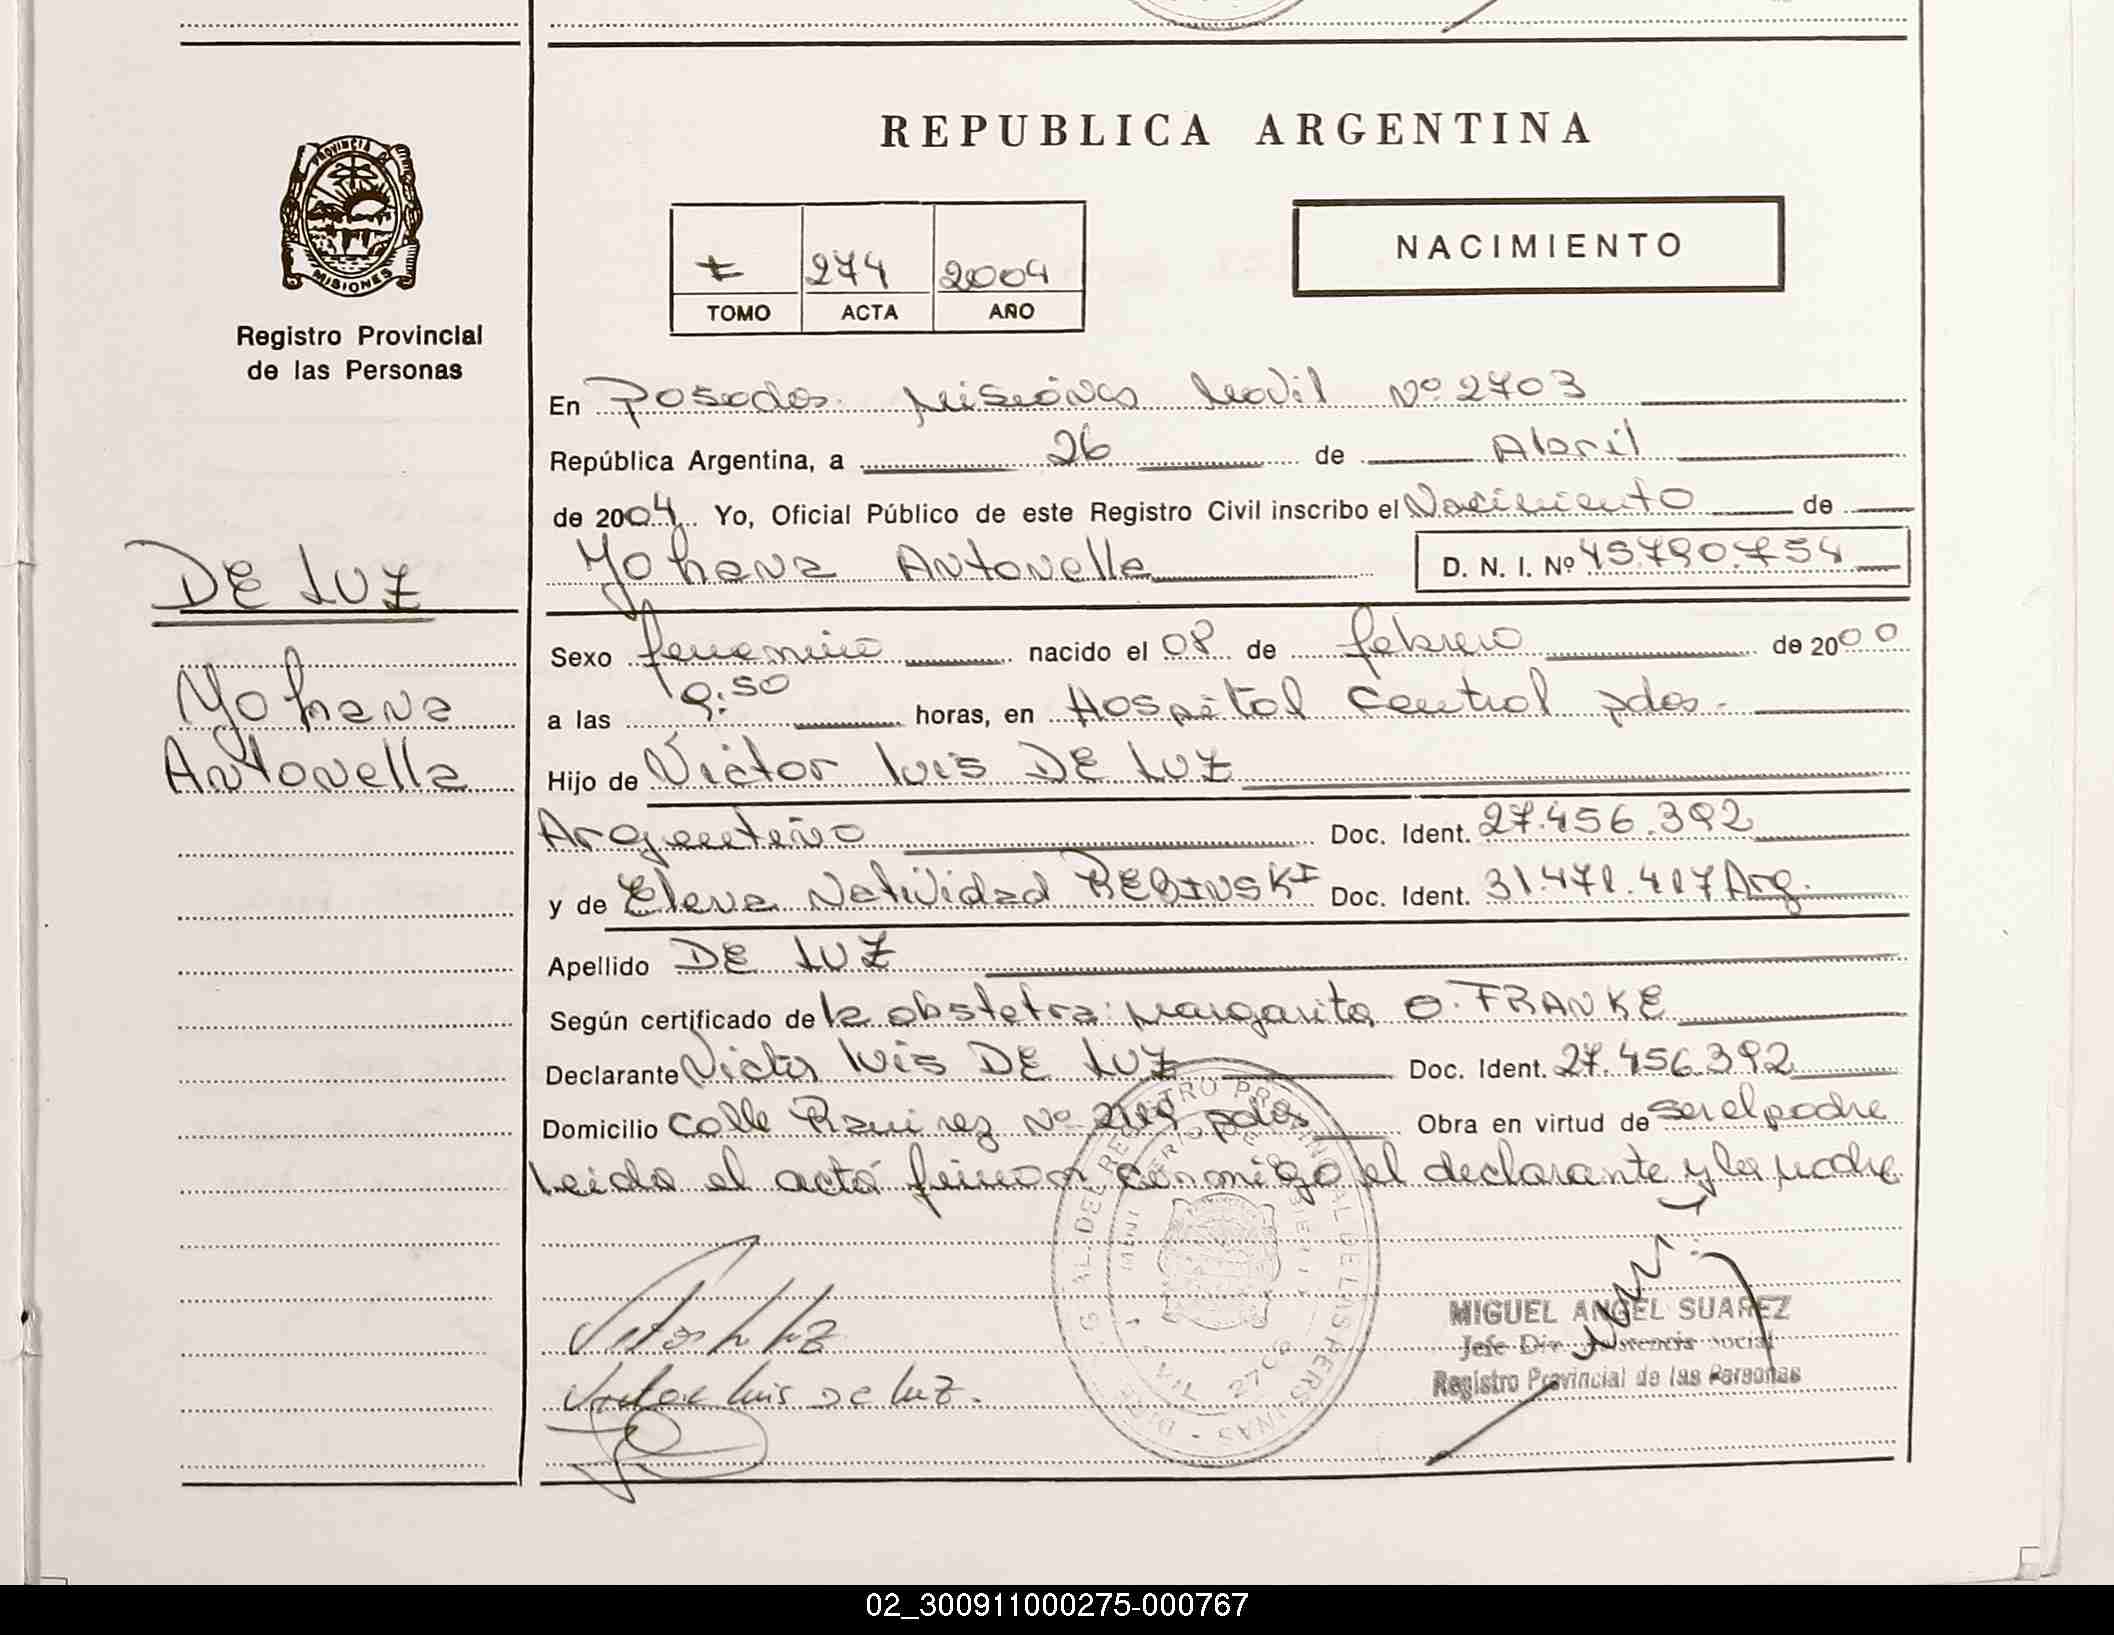 PROVINCIA DE
MISIONES
Registro Provincial
de las Personas
DE LUZ
Yohana
Antonella
REPUBLICA ARGENTINA
274 2004
TOMO ACTA AÑO
NACIMIENTO
En Posadas Misiones Movil Nº 2703
República Argentina, a 26 de Abril
de 2004 Yo, Oficial Público de este Registro Civil inscribo el Nacimiento de
Yohana Antonella D. N. I. Nº 45.790.754
Sexo femenino nacido el 08 de febrero de 2000
a las 9:50 horas, en Hospital Central pdas.
Hijo de Victor Luis DE LUZ
Argentino Doc. Ident. 27.456.392
y de Elena Natividad REBINSKI Doc. Ident. Arg.
Apellido DE LUZ
Según certificado de la obstetra: Margarita O. FRANKE
Declarante Victor Luis DE LUZ Doc. Ident. 27.456.392
Domicilio Calle Ramirez Nº pdas Obra en virtud de ser el padre
Leida el acta firman conmigo el declarante y la madre
Victor Luis De Luz.
MIGUEL ANGEL SUAREZ
Jefe Div. Asistencia Social
Registro Provincial de las Personas
02_300911000275-000767